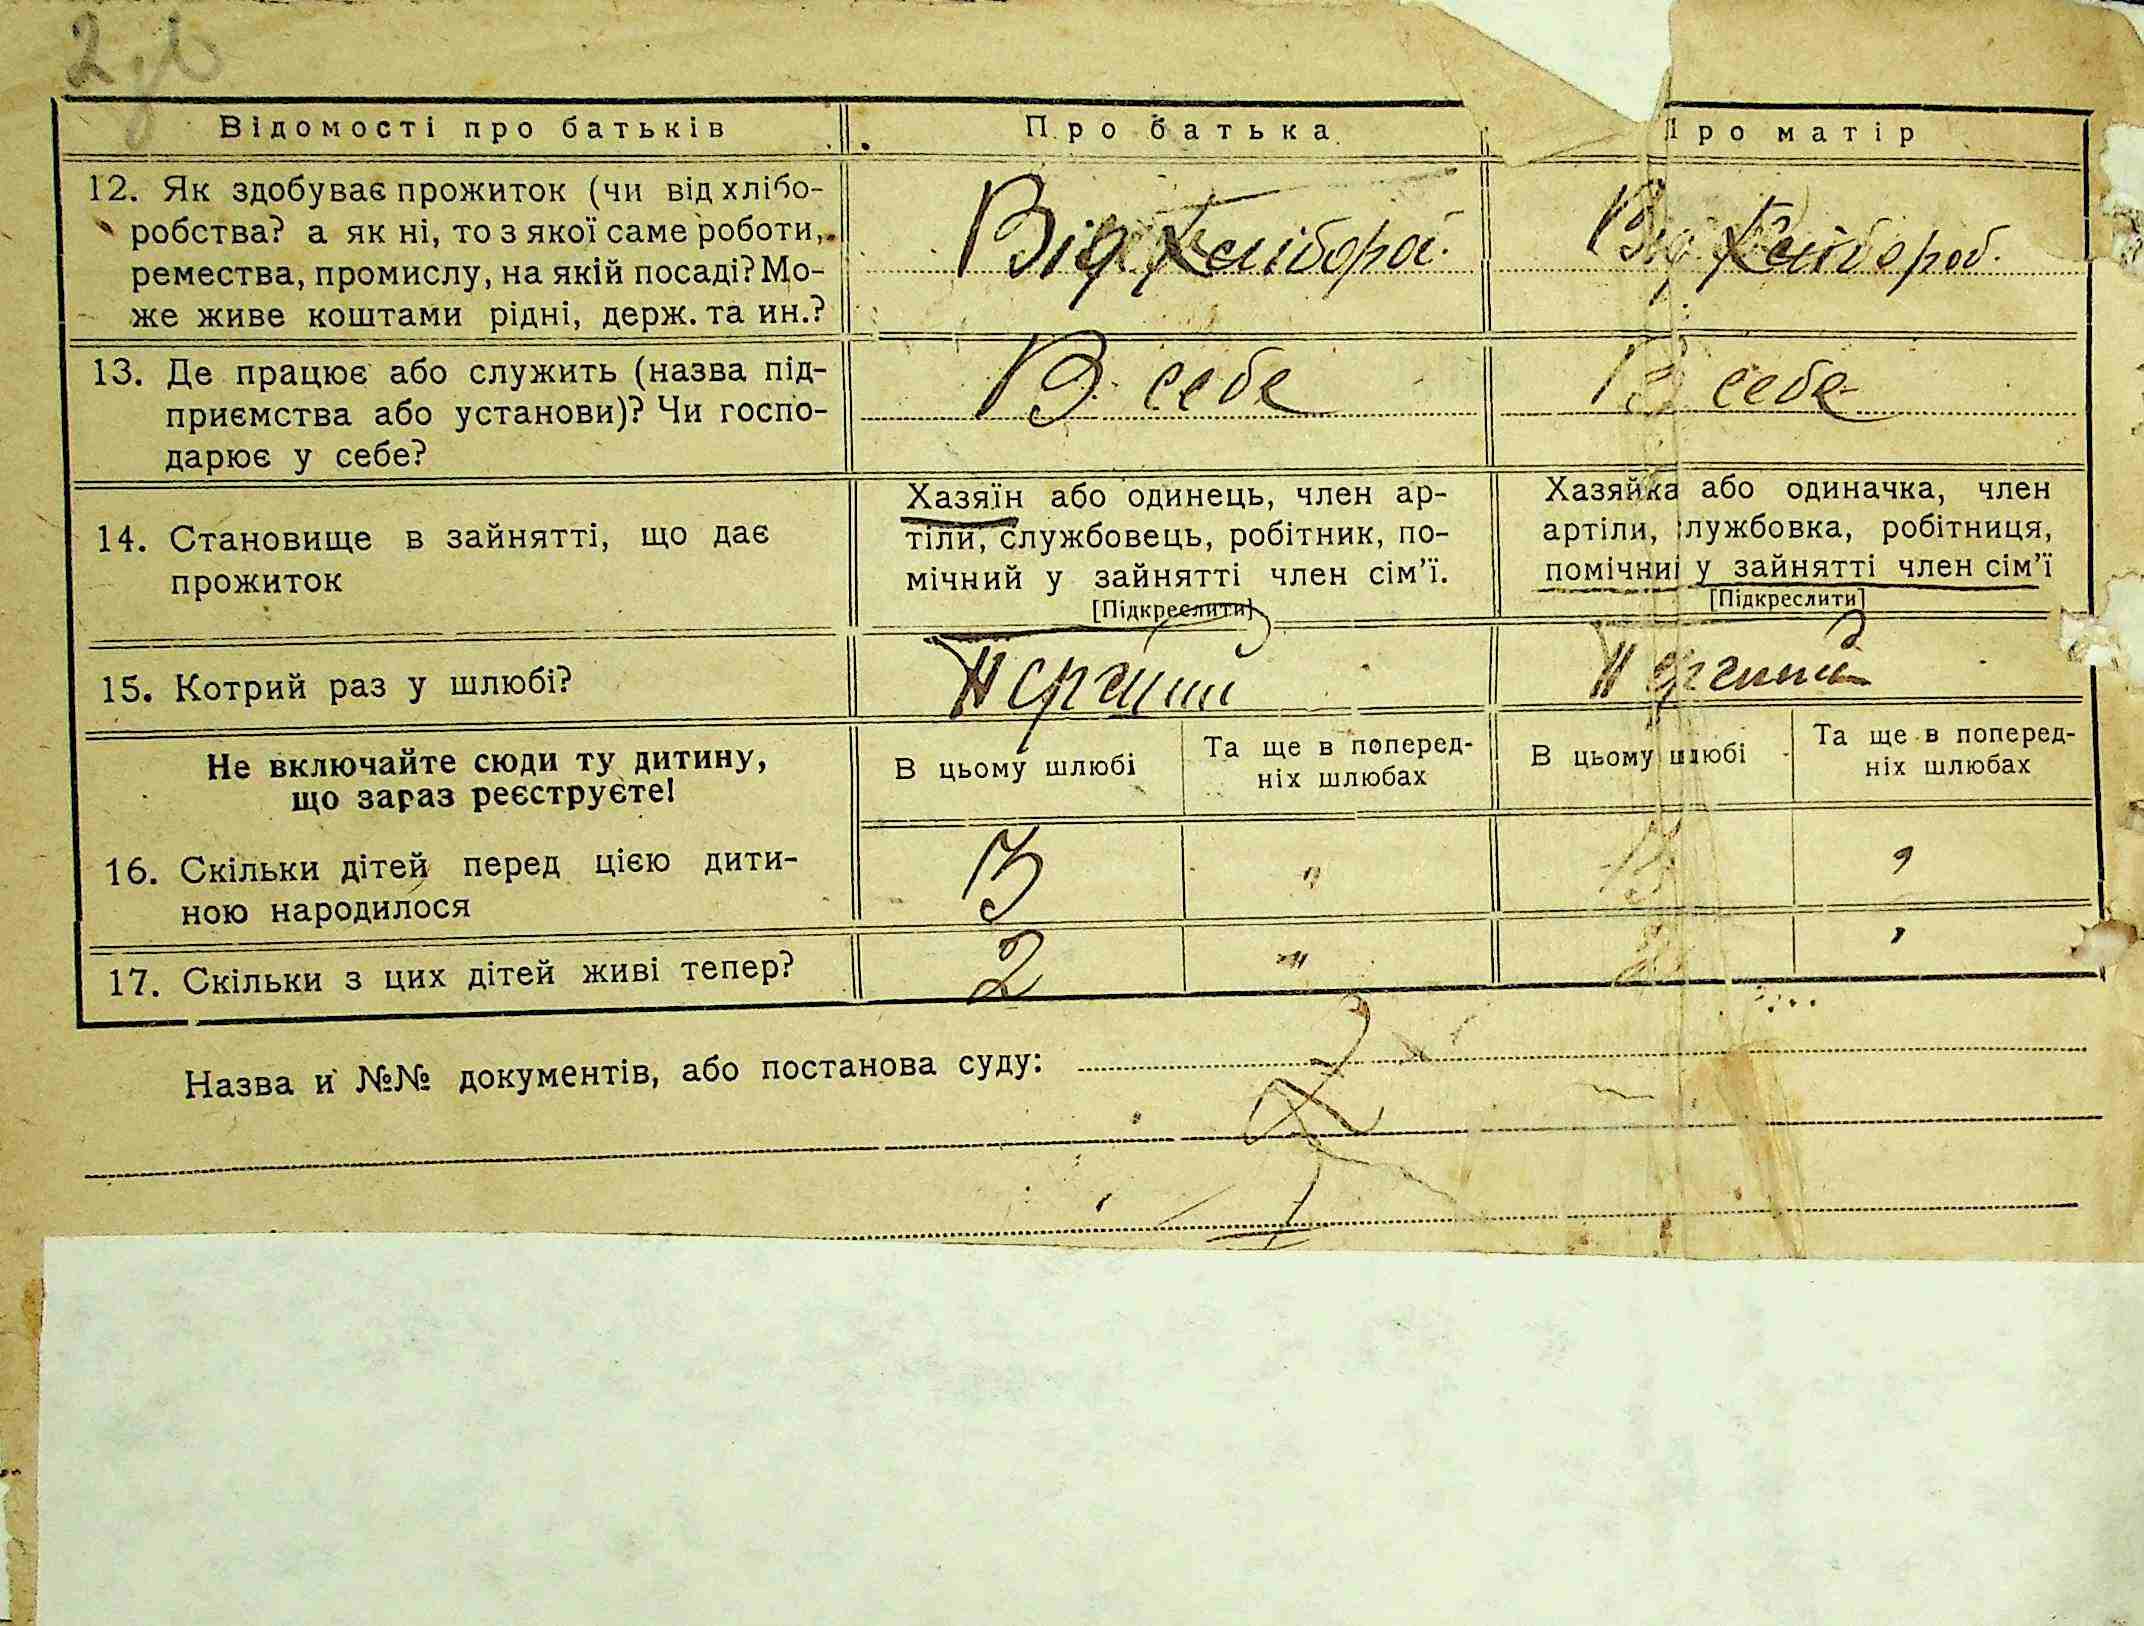 Відомості про батьків
Про батька
Про матір
12. Як здобуває прожиток (чи від хлібо-
робства? а як ні, то з якої саме роботи,
ремества, промислу, на якій посаді? Мо-
же живе коштами рідні, держ. та ин.?
Від Хлібороб.
Від Хлібороб.
13. Де працює або служить (назва під-
приємства або установи)? Чи госпо-
дарює у себе?
В себе
В себе
14. Становище в зайнятті, що дає
прожиток
Хазяїн або одинець, член ар-
тіли, службовець, робітник, по-
мічний у зайнятті член сім'ї.
[Підкреслити]
Хазяйка або одиначка, член
артіли, службовка, робітниця,
помічний у зайнятті член сім'ї
[Підкреслити]
15. Котрий раз у шлюбі?
Первий
Первий
Не включайте сюди ту дитину,
що зараз реєструєте!
В цьому шлюбі
Та ще в поперед-
ніх шлюбах
В цьому шлюбі
Та ще в поперед-
ніх шлюбах
16. Скільки дітей перед цією дити-
ною народилося
3 " 3 "
17. Скільки з цих дітей живі тепер?
2 " 2 "
Назва й №№ документів, або постанова суду: